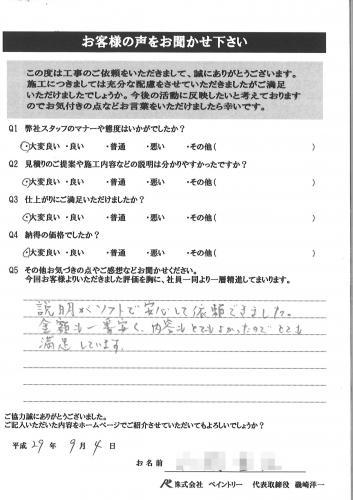 お客様の声をお聞かせ下さい
この度は工事のご依頼をいただきまして、誠にありがとうございます。
施工につきましては充分な配慮をさせていただきましたがご満足
いただけましたでしょうか。今後の活動に反映したいと考えております
のでお気付きの点などお言葉をいただけましたら幸いです。
Q1 弊社スタッフのマナーや態度はいかがでしたか?
・大変良い ・良い ・普通 ・悪い ・その他( )
Q2 見積りのご提案や施工内容などの説明は分かりやすかったですか?
・大変良い ・良い ・普通 ・悪い ・その他( )
Q3 仕上がりにご満足いただけましたか?
・大変良い ・良い ・普通 ・悪い ・その他( )
Q4 納得の価格でしたか?
・大変良い ・良い ・普通 ・悪い ・その他( )
Q5 その他お気づきの点やご感想などお聞かせください。
今回お客様よりいただきました評価を胸に、社員一同より一層精進してまいります。
説明がソフトで安心して依頼できました。
金額も一番安く、内容もとてもよかったのでとても
満足しています。
ご協力誠にありがとうございました。
ご記入いただいた内容をホームページでご紹介させていただいてもよろしいでしょうか?
平成 29 年 9 月 4 日
お名前
株式会社 ペイントリー 代表取締役 磯崎洋一